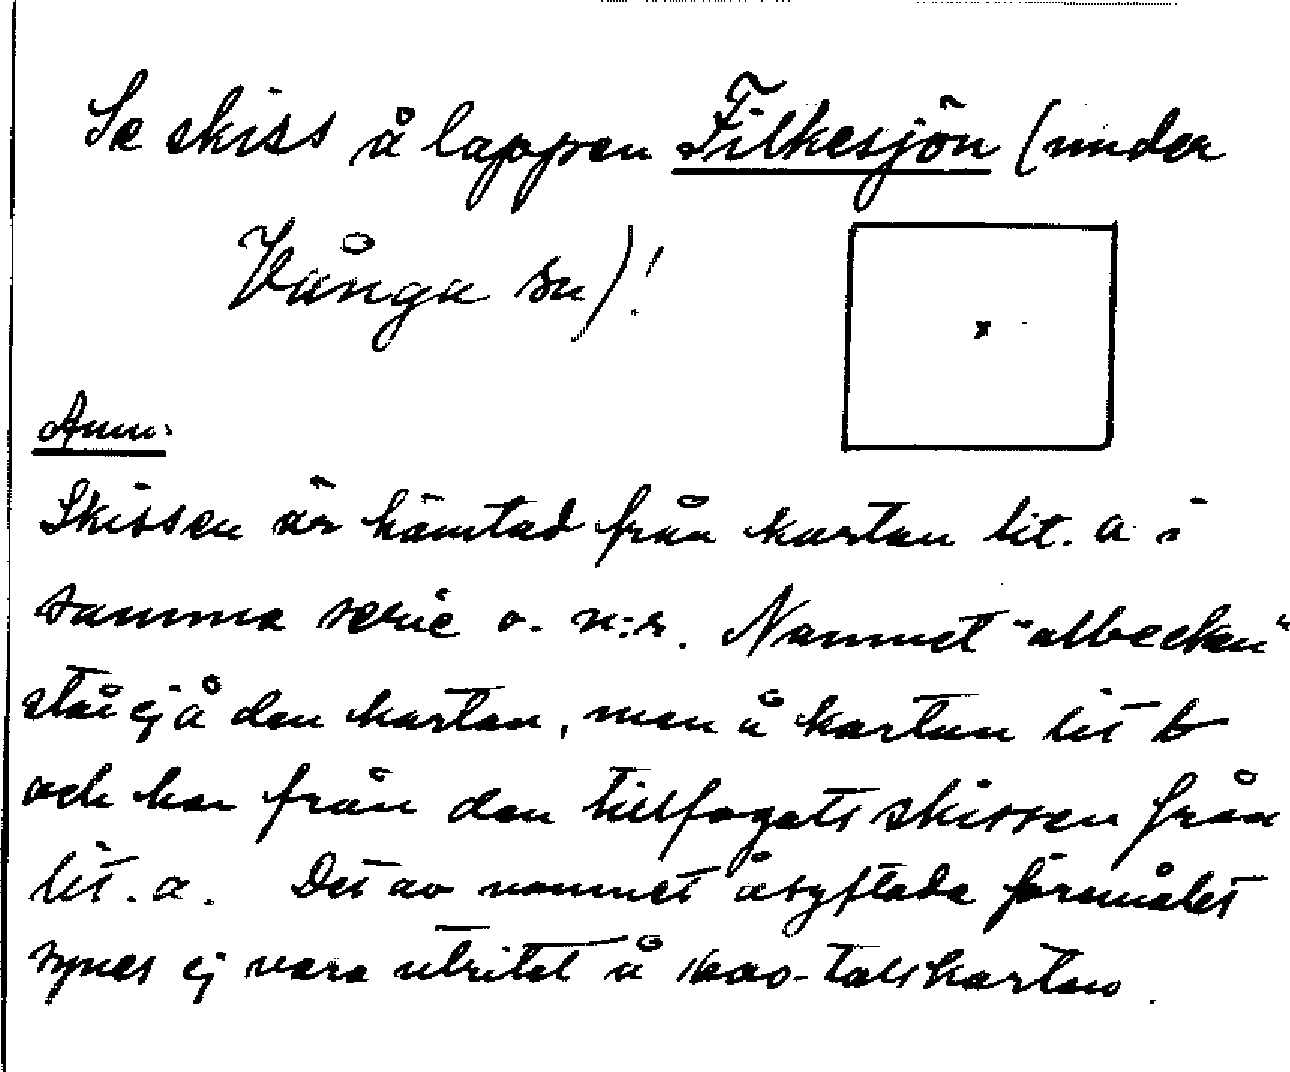 Se skiss å lappen Filkesjön (under
Vånga sn)!
Anm:
Skissen är hämtad från kartan lit. a i
samma serie o. n:r. Namnet "albecken"
står ej å den kartan, men å kartan lit b
och har från den tillfogats skissen från
lit. a. Det av namnet åsyftade föremålet
synes ej vara utritat å 1600-talskartan.